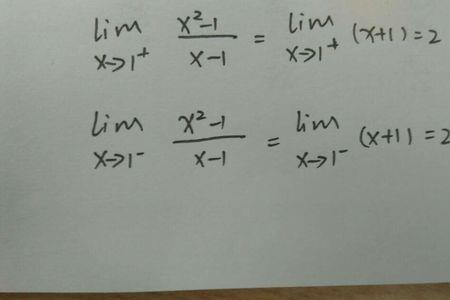 lim x→1⁺ (x²-1)/(x-1) = lim x→1⁺ (x+1) = 2
lim x→1⁻ (x²-1)/(x-1) = lim x→1⁻ (x+1) = 2